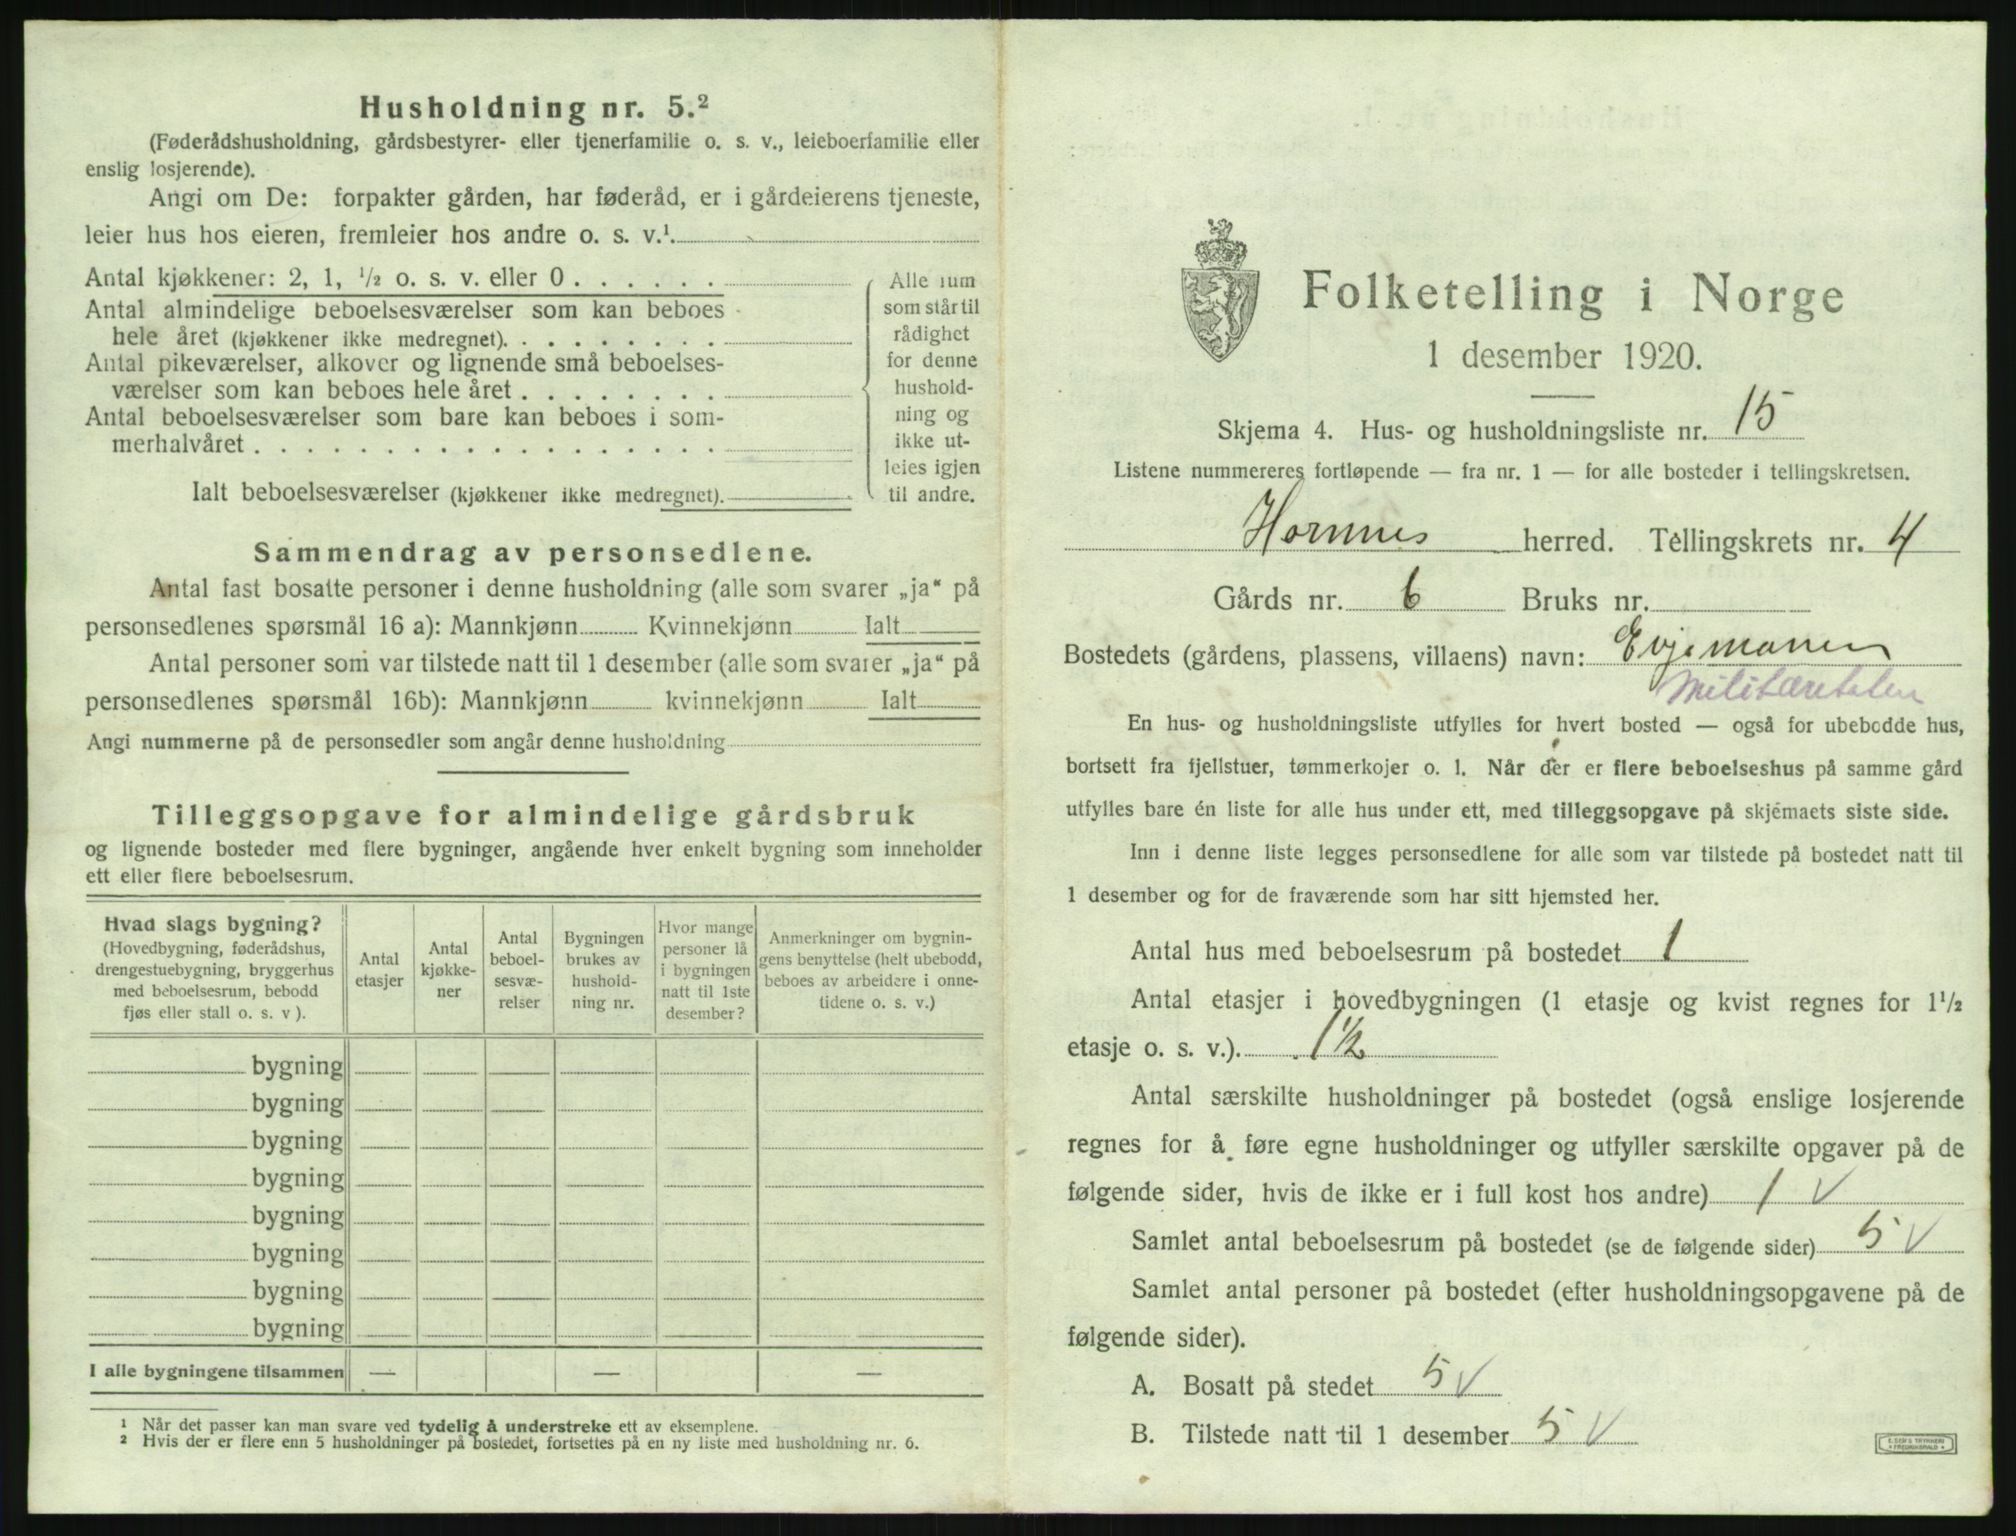 Husholdning nr. 5.²
(Føderådshusholdning, gårdsbestyrer- eller tjenerfamilie o. s. v., leieboerfamilie eller
enslig losjerende).
Angi om De: forpakter gården, har føderåd, er i gårdeierens tjeneste,
leier hus hos eieren, fremleier hos andre o. s. v.¹.
Antal kjøkkener: 2, 1, ½ o. s. v. eller 0 . . . . . .
Antal almindelige beboelsesværelser som kan beboes
hele året (kjøkkener ikke medregnet). . . . . . . . .
Antal pikeværelser, alkover og lignende små beboelses-
værelser som kan beboes hele året . . . . . . . .
Antal beboelsesværelser som bare kan beboes i som-
merhalvåret . . . . . . . . . . . . . . . . . .
Ialt beboelsesværelser (kjøkkener ikke medregnet).
Alle rum
som står til
rådighet
for denne
hushold-
ning og
ikke ut-
leies igjen
til andre.
Sammendrag av personsedlene.
Antal fast bosatte personer i denne husholdning (alle som svarer „ja“ på
personsedlenes spørsmål 16 a): Mannkjønn Kvinnekjønn Ialt
Antal personer som var tilstede natt til 1 desember (alle som svarer „ja“ på
personsedlenes spørsmål 16b): Mannkjønn kvinnekjønn Ialt
Angi nummerne på de personsedler som angår denne husholdning
Tilleggsopgave for almindelige gårdsbruk
og lignende bosteder med flere bygninger, angående hver enkelt bygning som inneholder
ett eller flere beboelsesrum.
Hvad slags bygning?
(Hovedbygning, føderådshus,
drengestuebygning, bryggerhus
med beboelsesrum, bebodd
fjøs eller stall o. s. v ).
Antal
etasjer
Antal
kjøkke-
ner
Antal
beboel-
sesvæ-
relser
Bygningen
brukes av
hushold-
ning nr.
Hvor mange
personer lå
i bygningen
natt til 1ste
desember?
Anmerkninger om bygnin-
gens benyttelse (helt ubebodd,
beboes av arbeidere i onne-
tidene o. s. v.)
bygning
bygning
bygning
bygning
bygning
bygning
bygning
bygning
I alle bygningene tilsammen — — —
¹ Når det passer kan man svare ved tydelig å understreke ett av eksemplene.
² Hvis der er flere enn 5 husholdninger på bostedet, fortsettes på en ny liste med husholdning nr. 6.
Folketelling i Norge
1 desember 1920.
Skjema 4. Hus- og husholdningsliste nr. 15
Listene nummereres fortløpende — fra nr. 1 — for alle bosteder i tellingskretsen.
Hornnes herred. Tellingskrets nr. 4
Gårds nr. 6 Bruks nr.
Bostedets (gårdens, plassens, villaens) navn: Evjemonen
Militæretaten
En hus- og husholdningsliste utfylles for hvert bosted — også for ubebodde hus,
bortsett fra fjellstuer, tømmerkojer o. l. Når der er flere beboelseshus på samme gård
utfylles bare én liste for alle hus under ett, med tilleggsopgave på skjemaets siste side.
Inn i denne liste legges personsedlene for alle som var tilstede på bostedet natt til
1 desember og for de fraværende som har sitt hjemsted her.
Antal hus med beboelsesrum på bostedet 1
Antal etasjer i hovedbygningen (1 etasje og kvist regnes for 1½
etasje o. s. v.). 1½
Antal særskilte husholdninger på bostedet (også enslige losjerende
regnes for å føre egne husholdninger og utfyller særskilte opgaver på de
følgende sider, hvis de ikke er i full kost hos andre) 1 √
Samlet antal beboelsesrum på bostedet (se de følgende sider) 5 √
Samlet antal personer på bostedet (efter husholdningsopgavene på de
følgende sider).
A. Bosatt på stedet 5 √
B. Tilstede natt til 1 desember 5 √